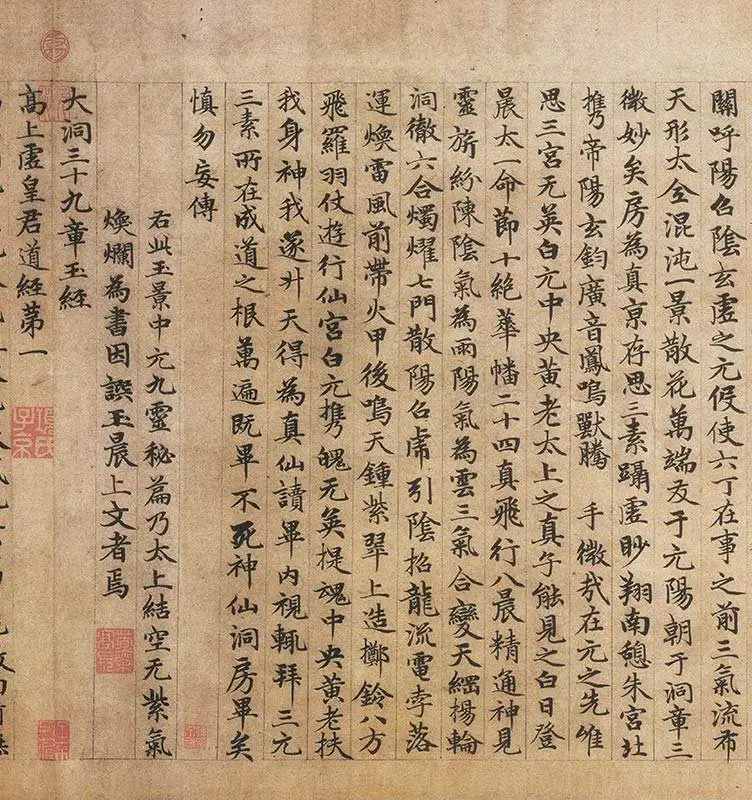 關呼陽召陰玄虛之元候使六丁在事之前三氣流布
天形太仝混沌一景散花萬端友于元陽朝于洞章三
微妙矣房為真京存思三素躡虛眇翔南憩朱宮北
攜帝陽玄鈞廣音鳳鳴獸騰 手微哉在元之先唯
思三宮无英白元中央黃老太上之真乎能見之白日登
晨太一命節十絕華幡二十四真飛行八晨精通神見
靈旂紛陳陰氣為雨陽氣為雲三氣合變天綱揚輪
洞徹六合燭耀七門散陽召虎引陰招龍流電孛落
運煥雷風前帶火甲後鳴天鍾紫翠上造擲鈴八方
飛羅羽仗遊行仙宮白元攜魄无英提魂中央黃老扶
我身神我遂升天得為真仙讀畢內視輒拜三元
三素所在成道之根萬遍既畢不死神仙洞房畢矣
慎勿妄傳
右此玉景中元九靈秘篇乃太上結空元紫氣
煥爛為書因譔玉晨上文者焉
大洞三十九章玉經
高上虛皇君道經第一
項氏子京